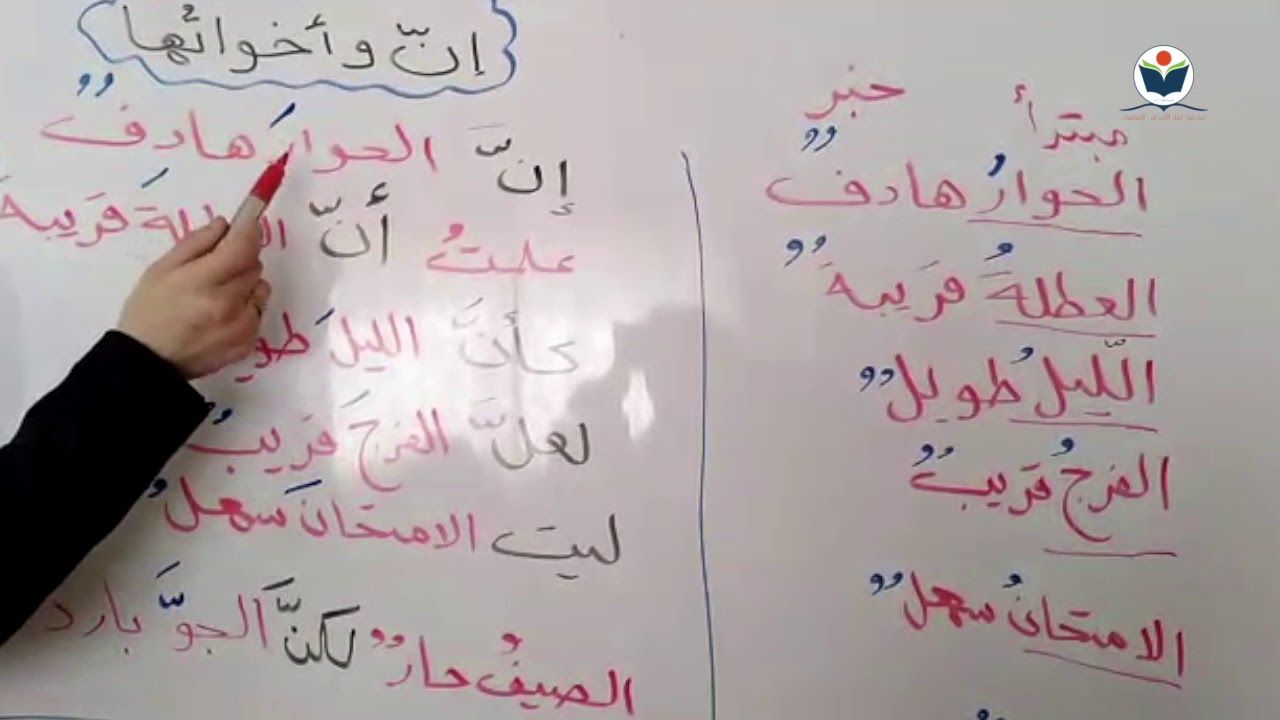 إنّ وأخوائها
مبتدأ خبر
الحوارُ هادفٌ
العطلةُ قريبةٌ
اللّيلُ طويلٌ
الفرجُ قريبٌ
الامتحانُ سهلٌ
إنَّ الحوارَ هادفٌ
علمتُ أنّ قريبة
كأنَّ الليلَ
لعلَّ الفرجَ قريبٌ
ليت الامتحانَ سهلٌ
الصيفُ حارٌ لكنَّ الجوَّ بارد